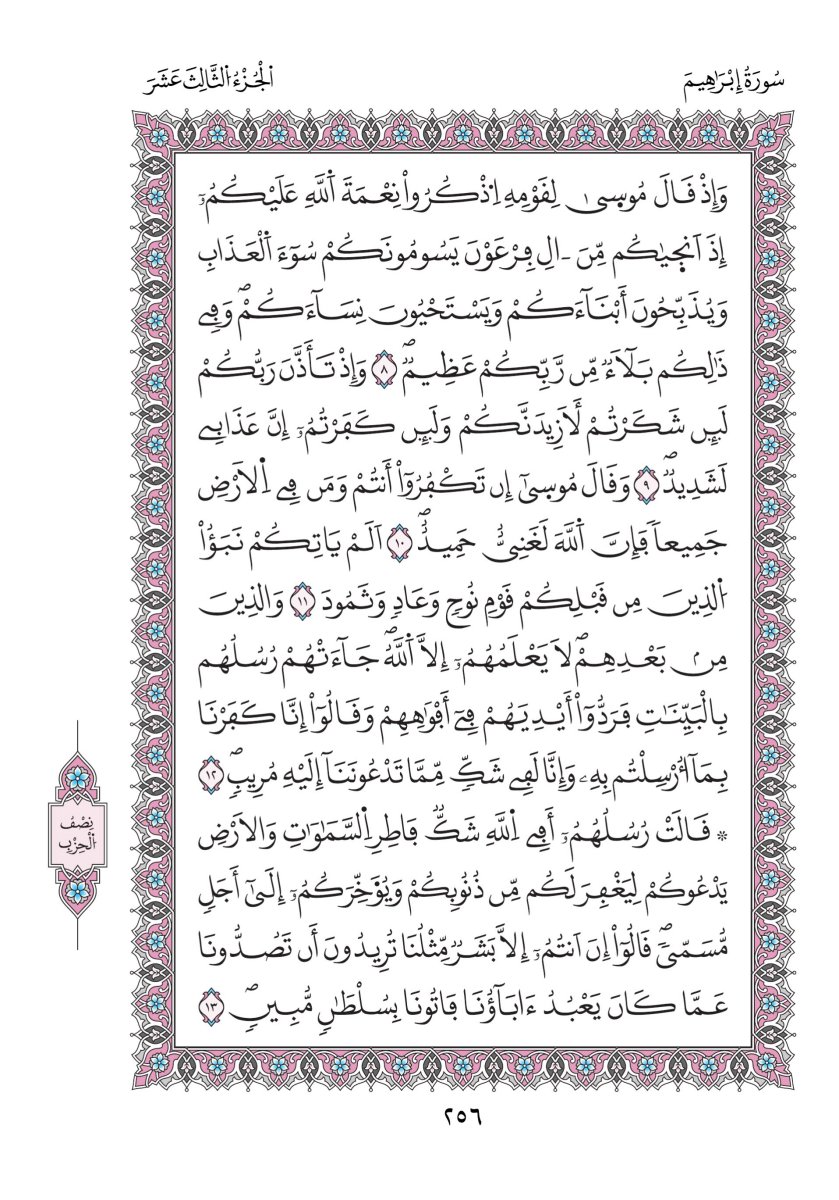 سُورَةُ إِبْرَٰهِيمَ
اَ۬لْجُزْءُ اُ۬لثَّالِثَ عَشَرَ
وَإِذْ قَالَ مُوس۪يٰ لِقَوْمِهِ اِ۟ذْكُرُواْ نِعْمَةَ اَ۬للَّهِ عَلَيْكُمُۥٓ
إِذَ اَنج۪يٰكُم مِّنَ اٰلِ فِرْعَوْنَ يَسُومُونَكُمْ سُوٓءَ اَ۬لْعَذَابِ
وَيُذَبِّحُونَ أَبْنَآءَكُمْ وَيَسْتَحْيُونَ نِسَآءَكُمْۖ وَفِے
ذَٰلِكُم بَلَآءٞ مِّن رَّبِّكُمْ عَظِيمٞۖ ٨ وَإِذْ تَأَذَّنَ رَبُّكُمْ
لَئِن شَكَرْتُمْ لَأَزِيدَنَّكُمْ وَلَئِن كَفَرْتُمُۥٓ إِنَّ عَذَابِے
لَشَدِيدٞۖ ٩ وَقَالَ مُوس۪يٰٓ إِن تَكْفُرُوٓاْ أَنتُمْ وَمَن فِے اِ۬لَارْضِ
جَمِيعاٗ فَإِنَّ اَ۬للَّهَ لَغَنِيٌّ حَمِيدٌۖ ١٠ اَلَمْ يَاتِكُمْ نَبَؤُاْ
اُ۬لذِينَ مِن قَبْلِكُمْ قَوْمِ نُوحٖ وَعَادٖ وَثَمُودَ ١١ وَالذِينَ
مِنۢ بَعْدِهِمْۖ لَا يَعْلَمُهُمُۥٓ إِلَّا اَ۬للَّهُۖ جَآءَتْهُمْ رُسُلُهُم
بِالْبَيِّنَٰتِ فَرَدُّوٓاْ أَيْدِيَهُمْ فِےٓ أَفْوَٰهِهِمْ وَقَالُوٓاْ إِنَّا كَفَرْنَا
بِمَآ أُرْسِلْتُم بِهِۦ وَإِنَّا لَفِے شَكّٖ مِّمَّا تَدْعُونَنَآ إِلَيْهِ مُرِيبٖۖ ١٢
۞ قَالَتْ رُسُلُهُمُۥٓ أَفِے اِ۬للَّهِ شَكّٞ فَاطِرِ اِ۬لسَّمَٰوَٰتِ وَالَارْضِ
يَدْعُوكُمْ لِيَغْفِرَ لَكُم مِّن ذُنُوبِكُمْ وَيُؤَخِّرَكُمُۥٓ إِلَىٰٓ أَجَلٖ
مُّسَمّيٗۖ قَالُوٓاْ إِنَ اَنتُمُۥٓ إِلَّا بَشَرٞ مِّثْلُنَا تُرِيدُونَ أَن تَصُدُّونَا
عَمَّا كَانَ يَعْبُدُ ءَابَآؤُنَا فَاتُونَا بِسُلْطَٰنٖ مُّبِينٖۖ ١٣
نِصْفُ
اُ۬لْحِزْبِ
٢٥٦